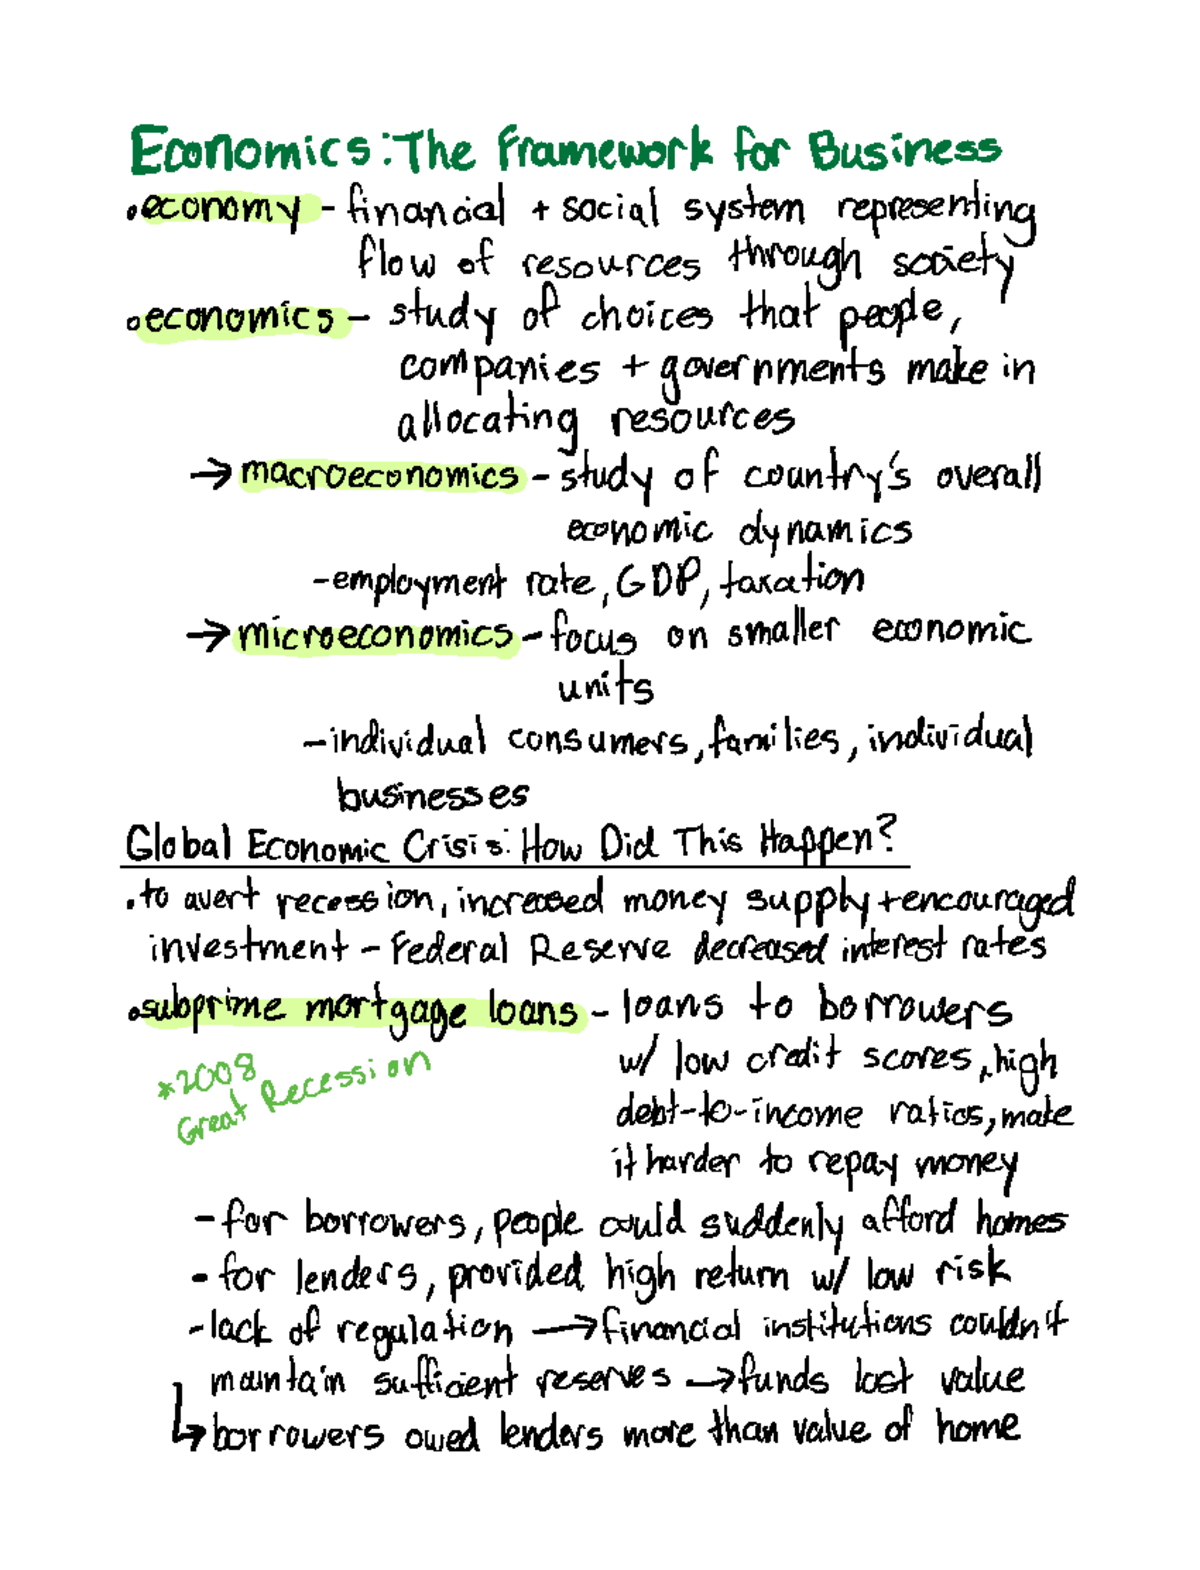 Economics: The Framework for Business
•economy - financial + social system representing
flow of resources through society
•economics - study of choices that people,
companies + governments make in
allocating resources
→ macroeconomics - study of country's overall
economic dynamics
-employment rate, GDP, taxation
→ microeconomics - focus on smaller economic
units
-individual consumers, families, individual
businesses
Global Economic Crisis: How Did This Happen?
•to avert recession, increased money supply + encouraged
investment - Federal Reserve decreased interest rates
•subprime mortgage loans - loans to borrowers
w/ low credit scores, high
debt-to-income ratios, make
it harder to repay money
*2008
Great Recession
- for borrowers, people could suddenly afford homes
- for lenders, provided high return w/ low risk
-lack of regulation → financial institutions couldn't
maintain sufficient reserves → funds lost value
↳ borrowers owed lenders more than value of home